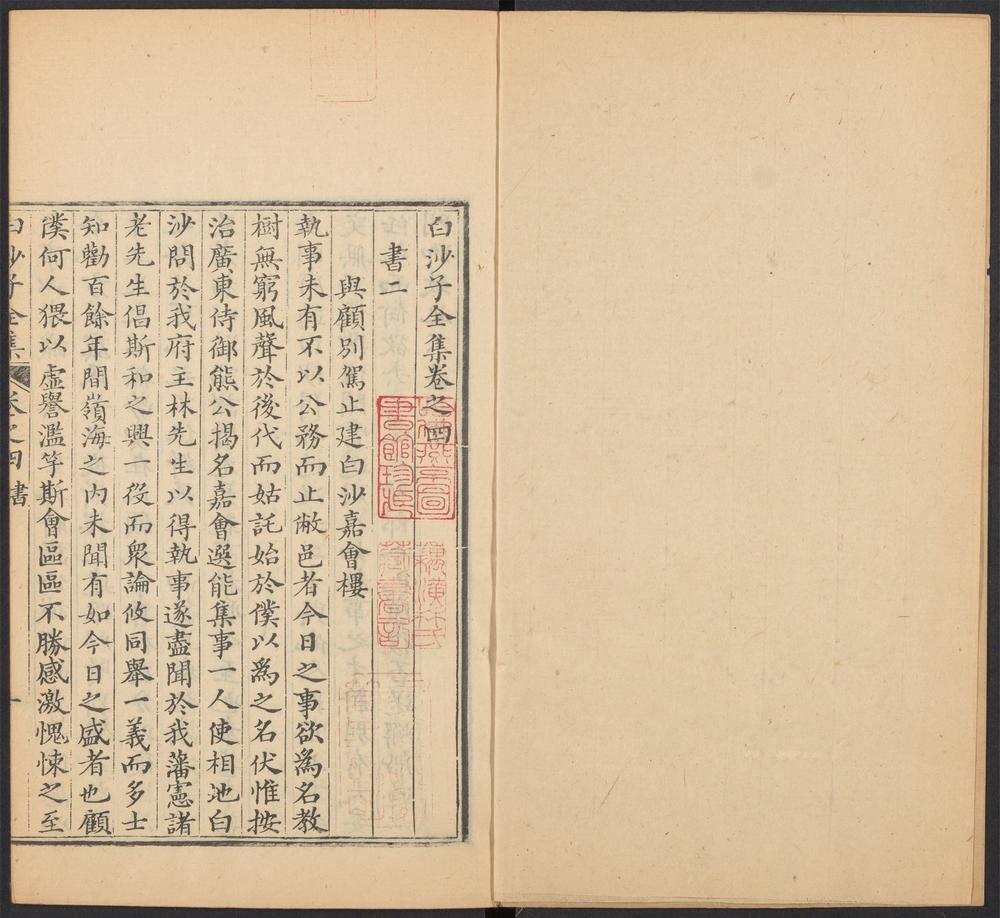 白沙子全集卷之四
書二
與顧別駕止建白沙嘉會樓
執事未有不以公務而止敝邑者今日之事欲爲名教
樹無窮風聲於後代而姑託始於僕以爲之名伏惟按
治廣東侍御熊公揭名嘉會選能集事一人使相地白
沙問於我府主林先生以得執事遂盡聞於我藩憲諸
老先生倡斯和之興一役而衆論攸同舉一義而多士
知勸百餘年間嶺海之內未聞有如今日之盛者也顧
僕何人猥以虛譽濫竽斯會區區不勝感激愧悚之至
白沙子全集 卷之四 書 一
哈佛燕京圖
書館珍藏